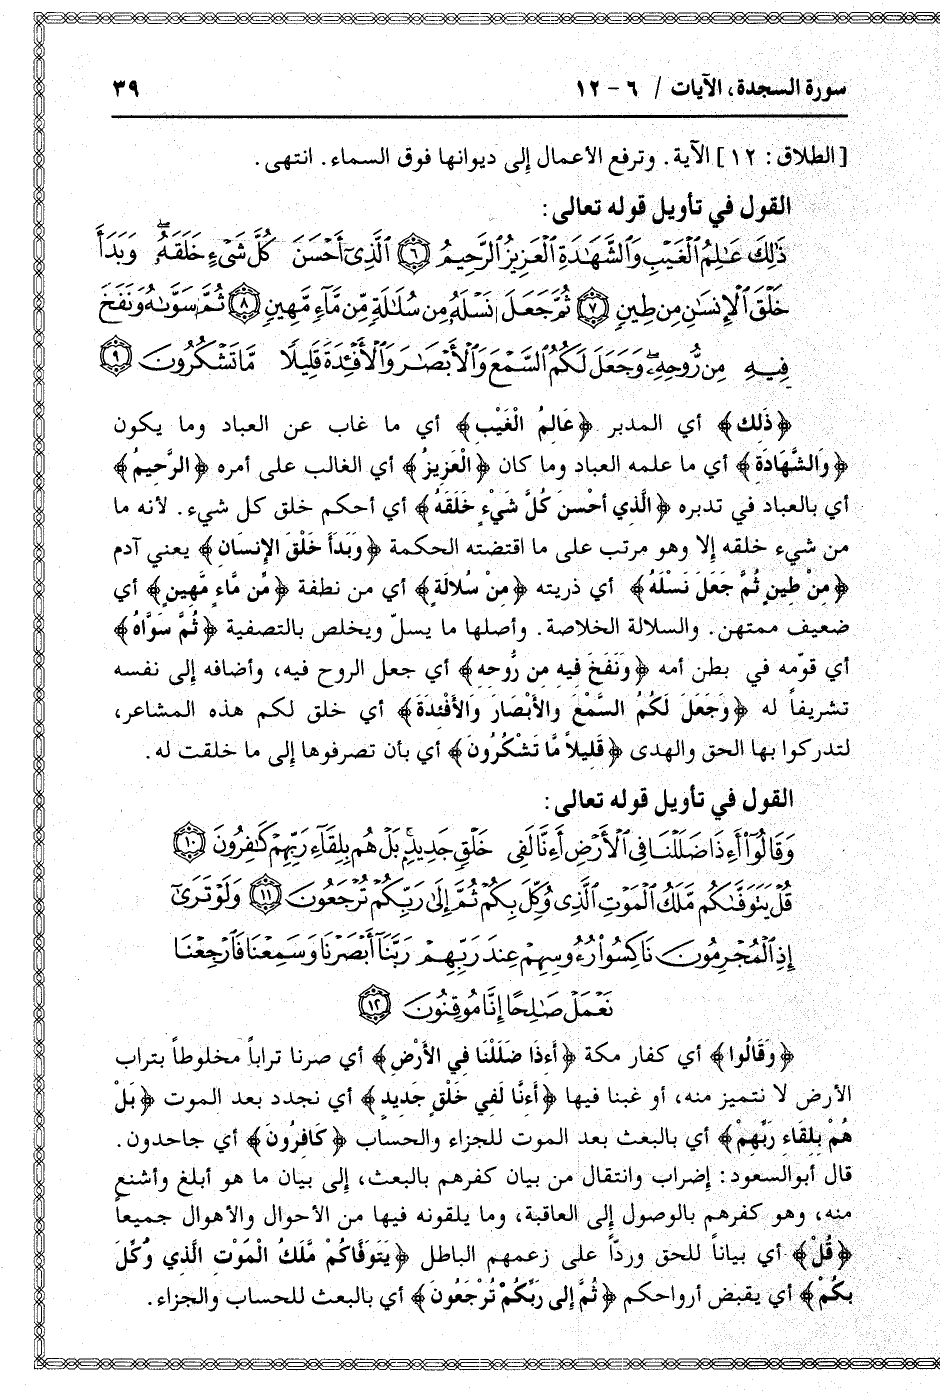 سورة السجدة، الآيات / ٦ - ١٢ ٣٩
[الطلاق: ١٢] الآية. وترفع الأعمال إلى ديوانها فوق السماء. انتهى.
القول في تأويل قوله تعالى:
ذَٰلِكَ عَـٰلِمُ ٱلْغَيْبِ وَٱلشَّهَـٰدَةِ ٱلْعَزِيزُ ٱلرَّحِيمُ ۝٦ ٱلَّذِىٓ أَحْسَنَ كُلَّ شَىْءٍ خَلَقَهُۥ ۖ وَبَدَأَ
خَلْقَ ٱلْإِنسَـٰنِ مِن طِينٍ ۝٧ ثُمَّ جَعَلَ نَسْلَهُۥ مِن سُلَـٰلَةٍ مِّن مَّآءٍ مَّهِينٍ ۝٨ ثُمَّ سَوَّىٰهُ وَنَفَخَ
فِيهِ مِن رُّوحِهِۦ ۖ وَجَعَلَ لَكُمُ ٱلسَّمْعَ وَٱلْأَبْصَـٰرَ وَٱلْأَفْـِٔدَةَ قَلِيلًا مَّا تَشْكُرُونَ ۝٩
﴿ذَلِكَ﴾ أي المدبر ﴿عَالِمُ الْغَيْبِ﴾ أي ما غاب عن العباد وما يكون
﴿وَالشَّهَادَةِ﴾ أي ما علمه العباد وما كان ﴿الْعَزِيزُ﴾ أي الغالب على أمره ﴿الرَّحِيمُ﴾
أي بالعباد في تدبره ﴿الَّذِي أحْسنَ كُلَّ شَيْءٍ خَلَقَهُ﴾ أي أحكم خلق كل شيء. لأنه ما
من شيء خلقه إلا وهو مرتب على ما اقتضته الحكمة ﴿وَبَدَأَ خَلْقَ الإِنسَانِ﴾ يعني آدم
﴿مِنْ طِينٍ ثُمَّ جَعَلَ نَسْلَهُ﴾ أي ذريته ﴿مِنْ سُلالَةٍ﴾ أي من نطفة ﴿مِّن مَّاءٍ مَّهِينٍ﴾ أي
ضعيف ممتهن. والسلالة الخلاصة. وأصلها ما يسلّ ويخلص بالتصفية ﴿ثُمَّ سَوَّاهُ﴾
أي قوّمه في بطن أمه ﴿وَنَفَخَ فِيهِ مِن رُّوحِهِ﴾ أي جعل الروح فيه، وأضافه إلى نفسه
تشريفاً له ﴿وَجَعَلَ لَكُمُ السَّمْعَ وَالأَبْصَارَ وَالأَفْئِدَةَ﴾ أي خلق لكم هذه المشاعر،
لتدركوا بها الحق والهدى ﴿قَلِيلاً مَّا تَشْكُرُونَ﴾ أي بأن تصرفوها إلى ما خلقت له.
القول في تأويل قوله تعالى:
وَقَالُوٓا۟ أَءِذَا ضَلَلْنَا فِى ٱلْأَرْضِ أَءِنَّا لَفِى خَلْقٍ جَدِيدٍۭ ۚ بَلْ هُم بِلِقَآءِ رَبِّهِمْ كَـٰفِرُونَ ۝١٠
قُلْ يَتَوَفَّىٰكُم مَّلَكُ ٱلْمَوْتِ ٱلَّذِى وُكِّلَ بِكُمْ ثُمَّ إِلَىٰ رَبِّكُمْ تُرْجَعُونَ ۝١١ وَلَوْ تَرَىٰٓ
إِذِ ٱلْمُجْرِمُونَ نَاكِسُوا۟ رُءُوسِهِمْ عِندَ رَبِّهِمْ رَبَّنَآ أَبْصَرْنَا وَسَمِعْنَا فَٱرْجِعْنَا
نَعْمَلْ صَـٰلِحًا إِنَّا مُوقِنُونَ ۝١٢
﴿وَقَالُوا﴾ أي كفار مكة ﴿أءذَا ضَلَلْنَا فِي الأَرْضِ﴾ أي صرنا تراباً مخلوطاً بتراب
الأرض لا نتميز منه، أو غبنا فيها ﴿أءنَّا لَفِي خَلْقٍ جَدِيدٍ﴾ أي نجدد بعد الموت ﴿بَلْ
هُمْ بِلِقَاءِ رَبِّهِمْ﴾ أي بالبعث بعد الموت للجزاء والحساب ﴿كَافِرُونَ﴾ أي جاحدون.
قال أبوالسعود: إضراب وانتقال من بيان كفرهم بالبعث، إلى بيان ما هو أبلغ وأشنع
منه، وهو كفرهم بالوصول إلى العاقبة، وما يلقونه فيها من الأحوال والأهوال جميعاً
﴿قُلْ﴾ أي بياناً للحق وردّاً على زعمهم الباطل ﴿يَتَوفَّاكُمْ مَّلَكُ الْمَوْتِ الَّذِي وُكِّلَ
بِكُمْ﴾ أي يقبض أرواحكم ﴿ثُمَّ إِلى رَبِّكُمْ تُرْجَعُونَ﴾ أي بالبعث للحساب والجزاء.